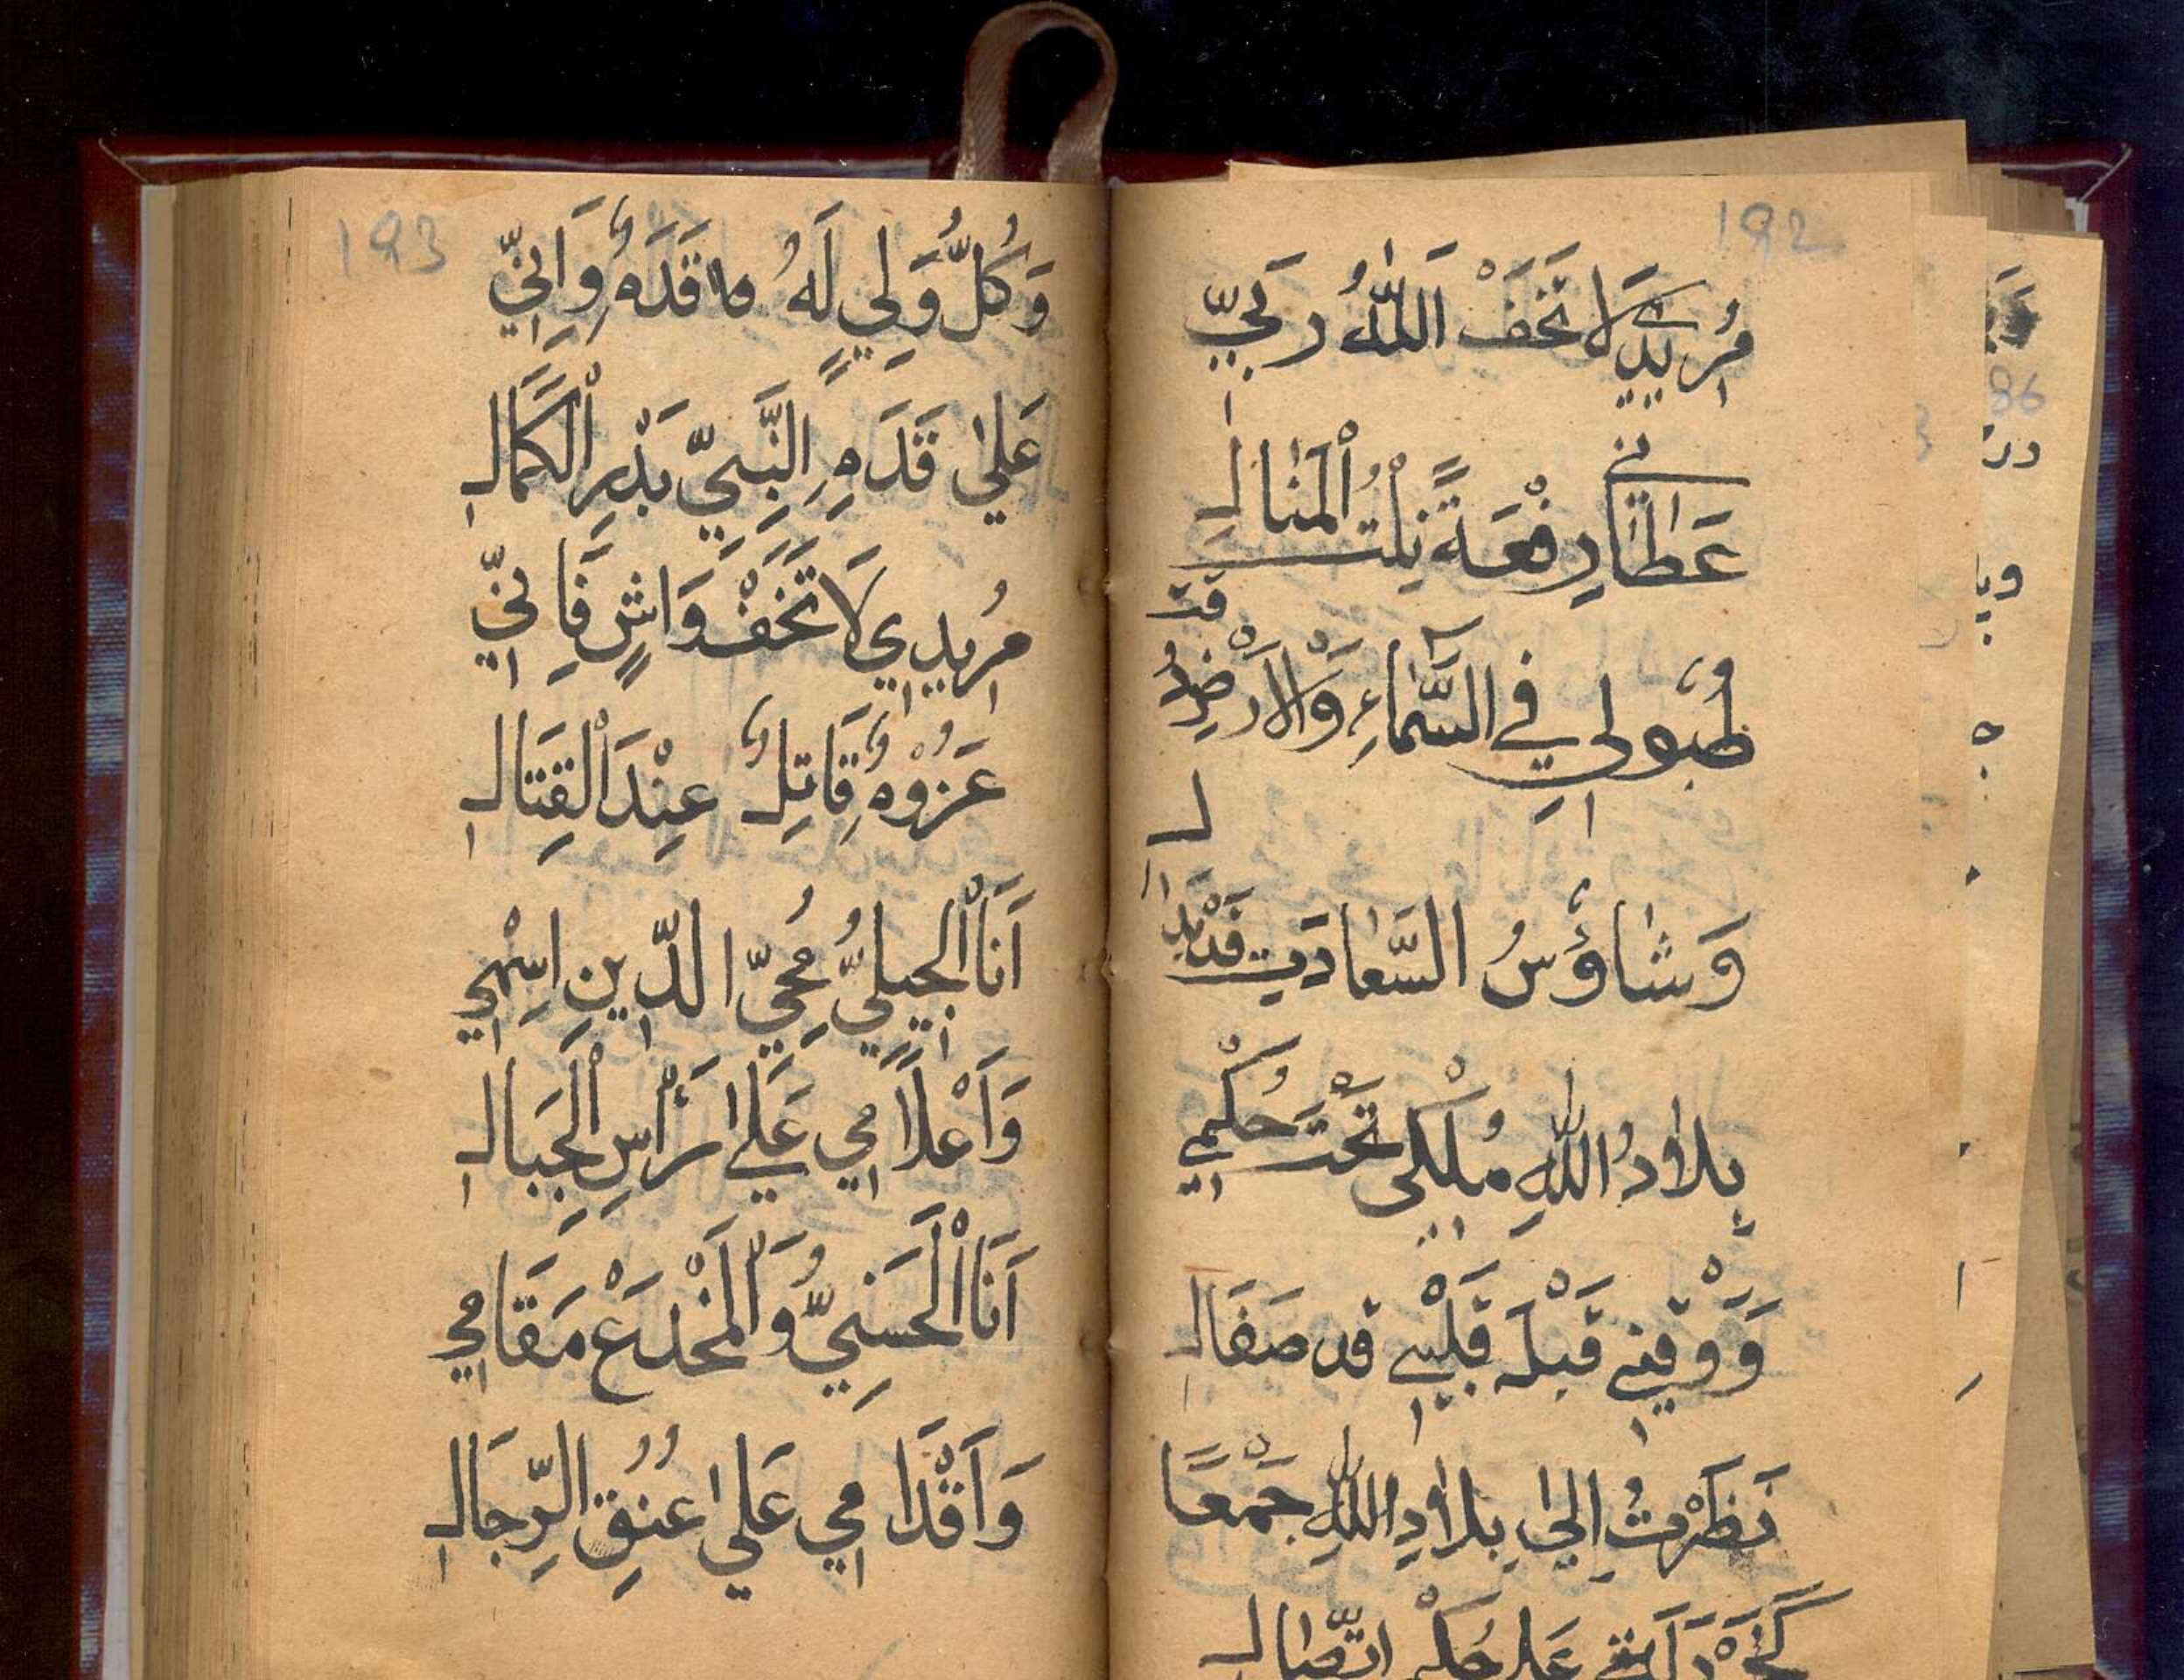 192
مُرِيدِي لَا تَخَفْ اَللّٰهُ رَبِّي
عَطَانِي رِفْعَةً نِلْتُ الْمَنَالِ
طُبُولِي فِي السَّمَاءِ وَالْاَرْضِ دُقَّتْ
وَشَاؤُسُ السَّعَادَتِ قَدْ بَدَا لِ
بِلَادُ اللّٰهِ مُلْكِي تَحْتَ حُكْمِي
وَوَقْتِي قَبْلَ قَلْبِي قد صَفَالِ
نَظَرْتُ اِلٰى بِلَادِ اللّٰهِ جَمْعًا
كَخَرْدَلَةٍ عَلٰى حُكْمِ اتِّصَالِ
193
وَكُلُّ وَلِيٍّ لَهُ قَدَمٌ وَاِنِّي
عَلٰى قَدَمِ النَّبِيِّ بَدْرِ الْكَمَالِ
مُرِيدِي لَا تَخَفْ وَاشٍ فَاِنِّي
عَزُوْمٌ قَاتِلٌ عِنْدَ الْقِتَالِ
اَنَا الْجِيلِيُّ مُحِيُّ الدِّينِ اِسْمِي
وَاَعْلَامِي عَلٰى رَأْسِ الْجِبَالِ
اَنَا الْحَسَنِيُّ وَالْمَخْدَعْ مَقَامِي
وَاَقْدَامِي عَلٰى عُنُقِ الرِّجَالِ